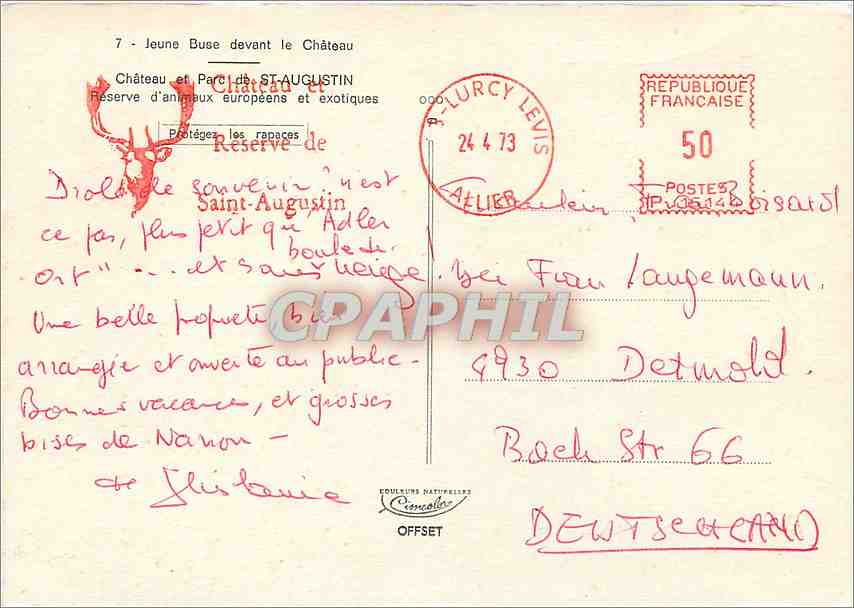 7 - Jeune Buse devant le Château
Château et Parc de ST-AUGUSTIN
Réserve d'animaux européens et exotiques
Protégez les rapaces
Château et
Réserve de
Saint-Augustin
000
LURCY LEVIS
24 4 73
ALLIER
REPUBLIQUE
FRANCAISE
50
POSTES
Drôle de souvenir "n'est
ce pas, plus petit que Adler
boule de
" ... et sans neige.
Une belle propriété bien
arrangée et ouverte au public.
Bonnes vacances, et grosses
bises de Nanon -
et Ghislaine
bei Frau Langemann.
4930 Detmold.
Bach Str 66
DEUTSCHLAND
COULEURS NATURELLES
Cimcolor
OFFSET
CPAPHIL